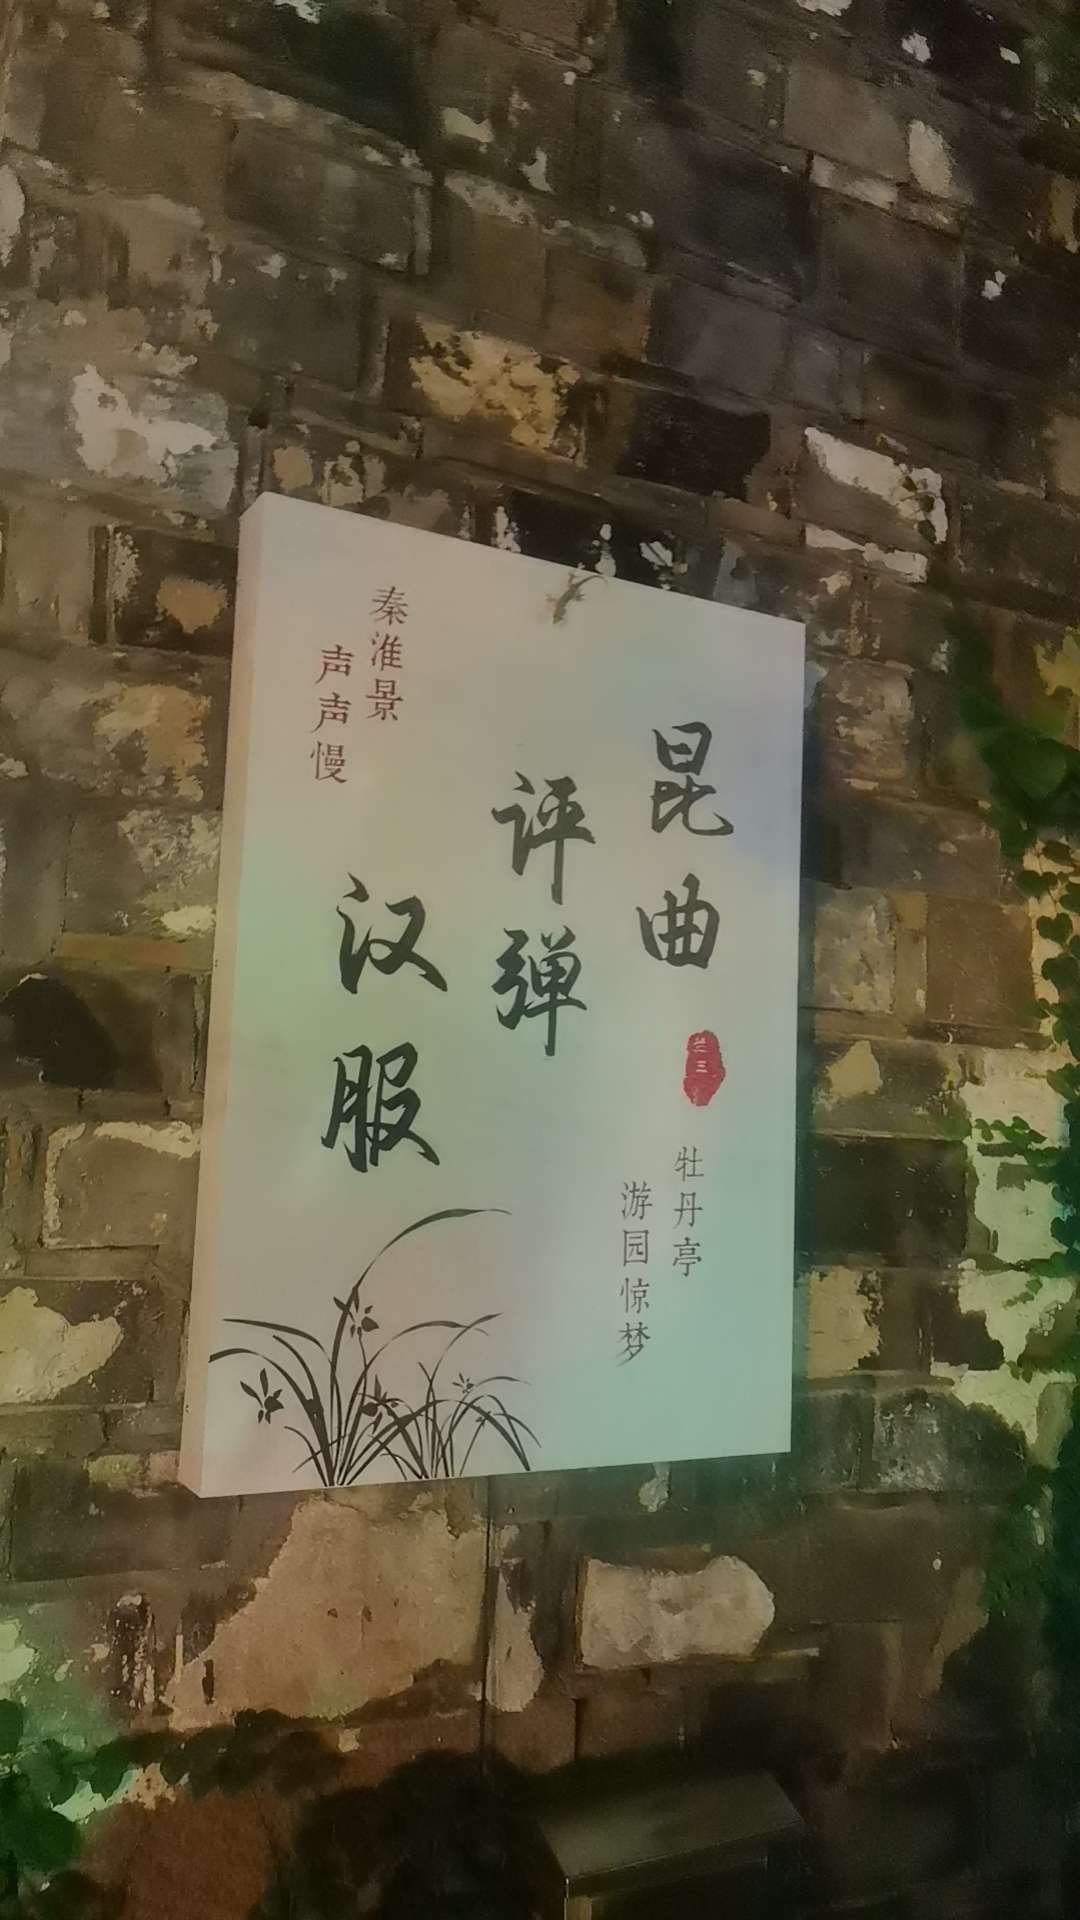 昆曲
牡丹亭
游园惊梦
评弹
秦淮景
声声慢
汉服